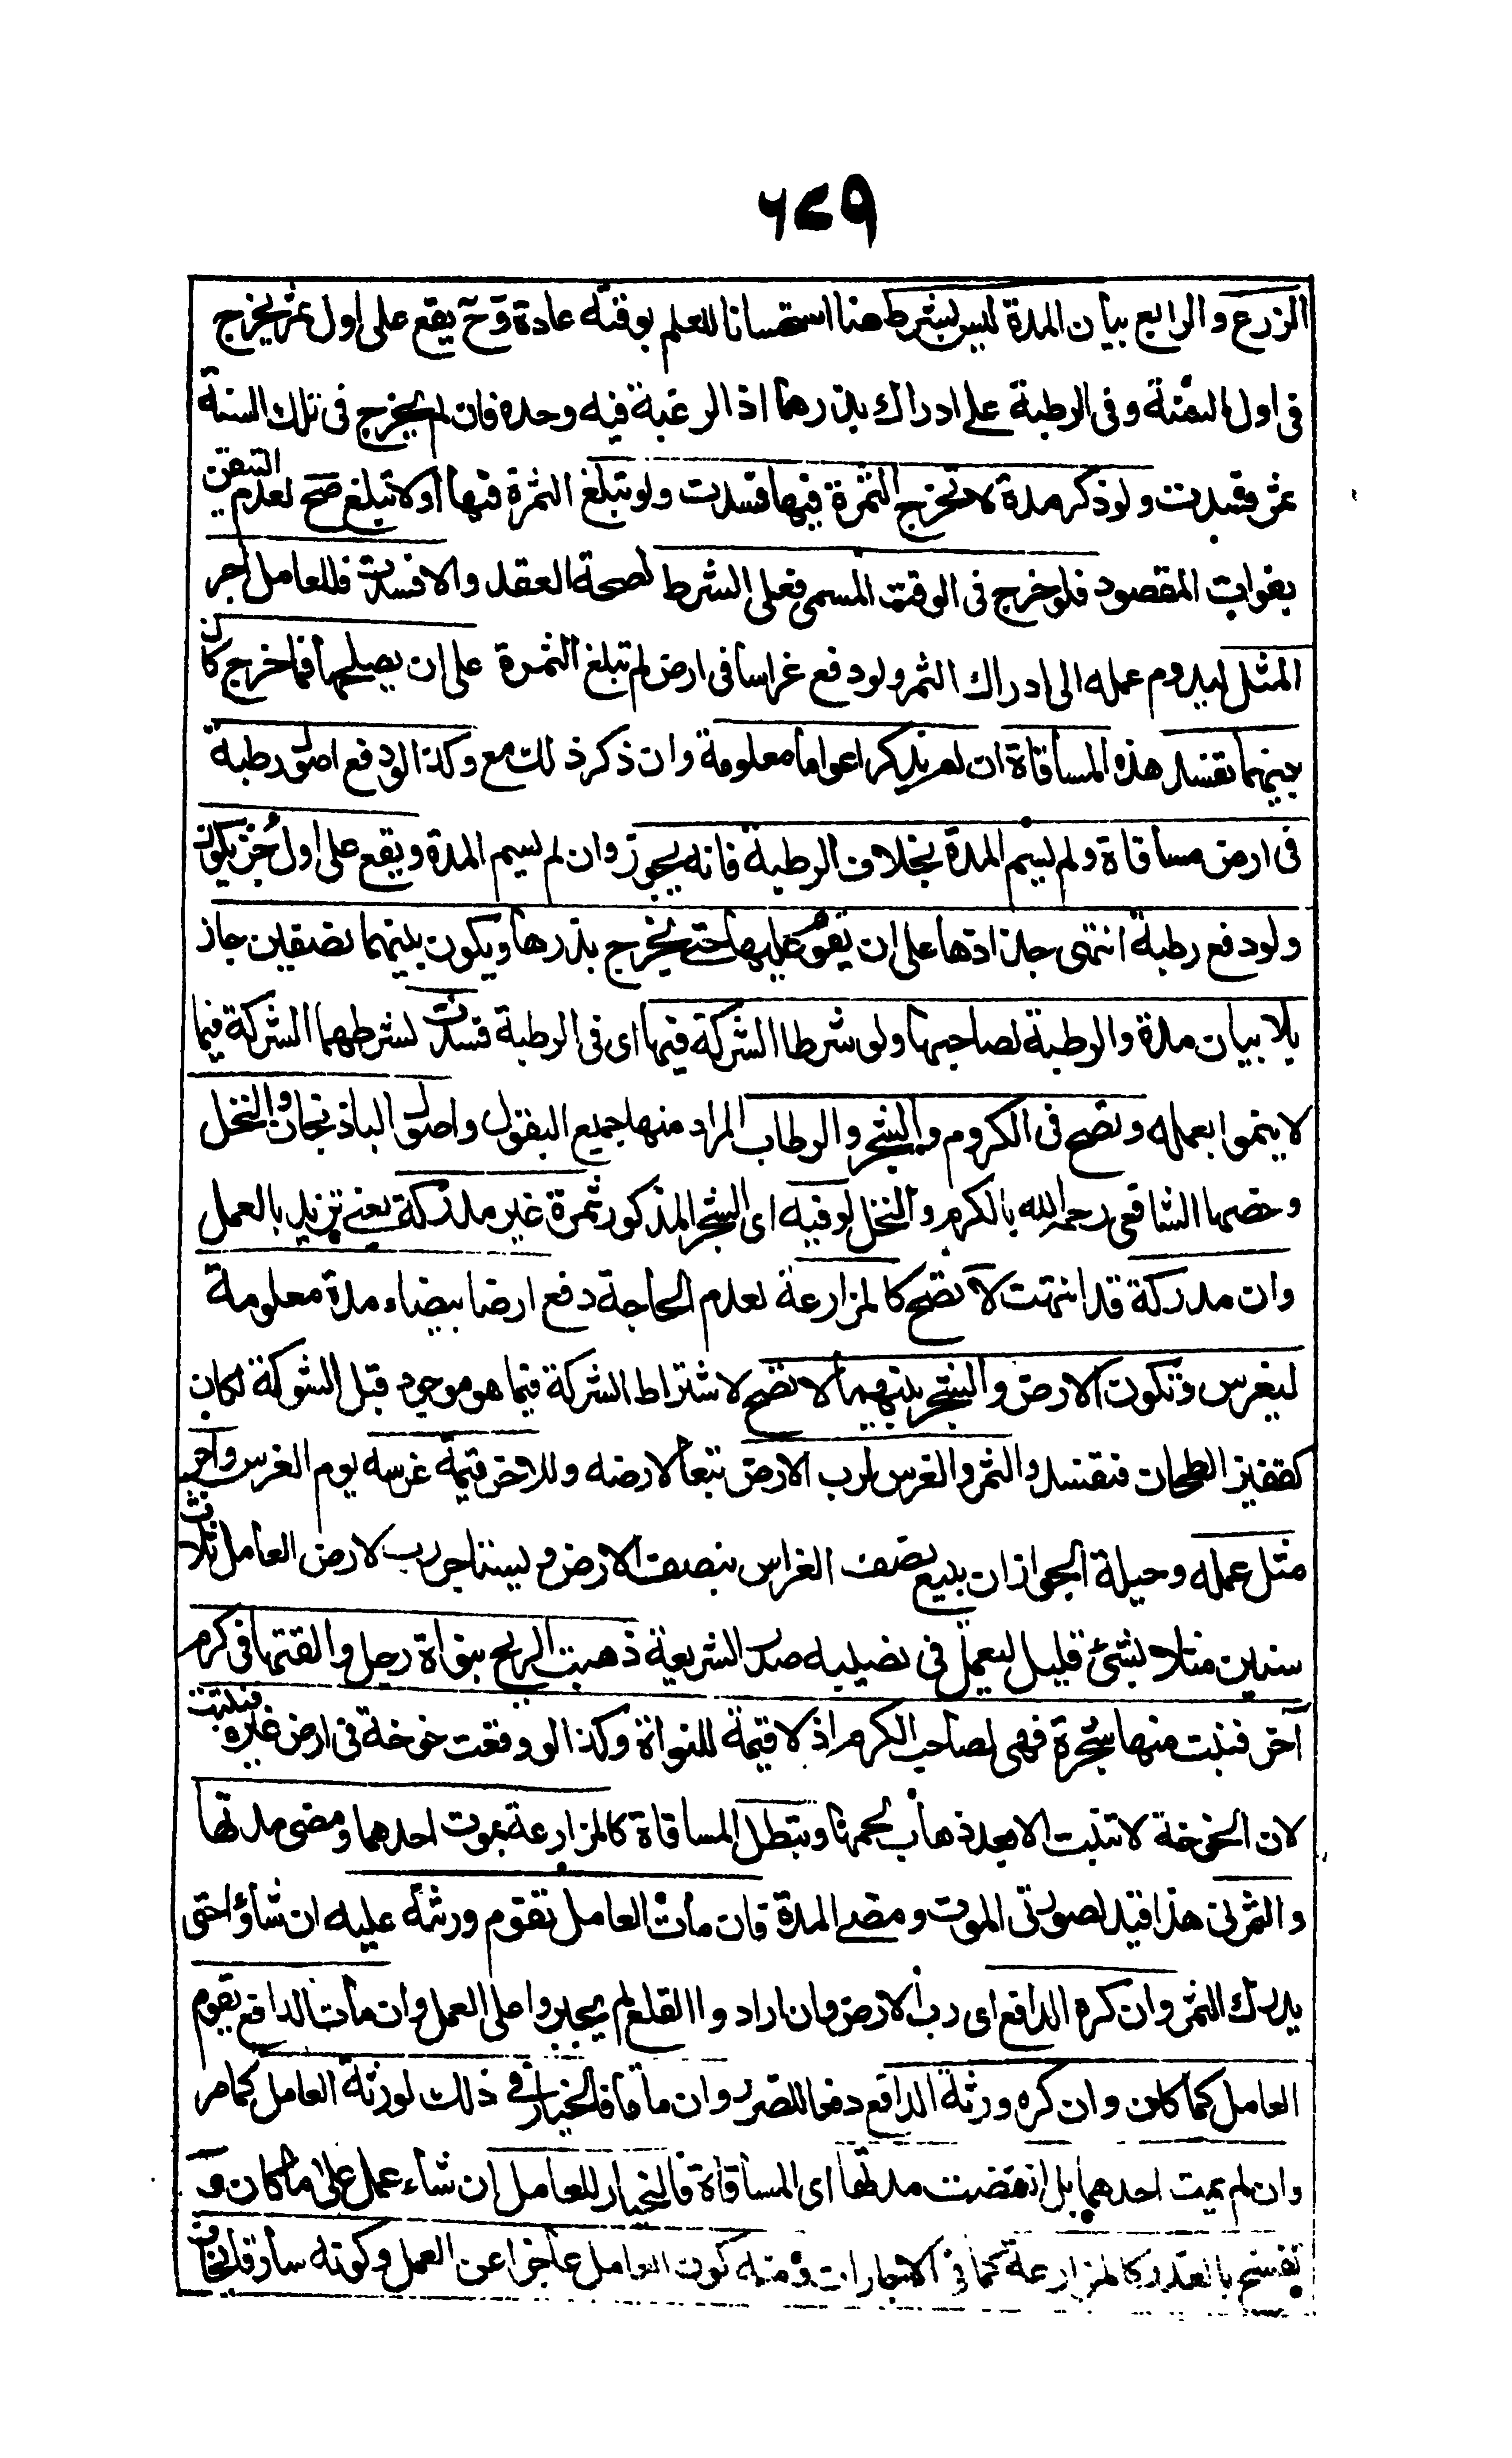 ٦٤٩
الزرع والرابع بيان المدة ليس بشرط هنا استحسانا للعلم بوقته عادة وح يقع على اول ثمر يخرج
فى اول السنة وفى الرطبة على ادراك بذرها اذ الرغبة فيه وحده فان لم يخرج فى تلك السنة
ثمر فسدت ولو ذكر مدة لا تخرج الثمرة فيها فسدت ولو تبلغ الثمرة فيها او لا تبلغ صح لعدم التيقن
بفوات المقصود فلو خرج فى الوقت المسمى فعلى الشرط لصحة العقد والا فسدت فللعامل اجر
المثل ليدوم عمله الى ادراك الثمر ولو دفع غراسا فى ارض لم تبلغ الثمرة على ان يصلحها فما خرج كان
بينهما تفسد هذه المساقاة ان لم يذكر اعواما معلومة وان ذكر ذلك صح وكذا لو دفع اصول رطبة
فى ارض مساقاة ولم يسم المدة بخلاف الرطبة فانه يجوز وان لم يسم المدة ويقع على اول جز يكون
ولو دفع رطبة انتهى جذاذها على ان يقوم عليها حتى يخرج بذرها ويكون بينهما نصفين جاز
بلا بيان مدة والرطبة لصاحبها ولو شرطا الشركة فيها اى فى الرطبة فسدت لشرطهما الشركة فيما
لا ينموا بعمله وتصح فى الكروم والشجر والرطاب المراد منها جميع البقول واصول الباذنجان والنخل
وخصها الشافعى رحمه الله بالكرم والنخل لو فيه اى الشجر المذكور ثمرة غير مدركة يعنى تزيد بالعمل
وان مدركة قد انتهت لا تصح كالمزارعة لعدم الحاجة دفع ارضا بيضاء مدة معلومة
ليغرس وتكون الارض والشجر بينهما لا تصح لاشتراط الشركة فيما هو موجود قبل الشركة فكان
كقفيز الطحان فتفسد والثمر والغرس لرب الارض تبعا لارضه وللاخر قيمة غرسه يوم الغرس واجر
مثل عمله وحيلة الجواز ان يبيع نصف الغراس بنصف الارض ويستاجر رب الارض العامل ثلاث
سنين مثلا بشئ قليل ليعمل فى نصيبه صدر الشريعة ذهبت الريح بنواة رجل والقتها فى كرم
آخر فنبت منها شجرة فهى لصاحب الكرم اذ لا قيمة للنواة وكذا لو وقعت خوخة فى ارض غيره فنبتت
لان الخوخة لا تنبت الا بعد ذهاب لحمها وتبطل المساقاة كالمزارعة بموت احدهما ومضى مدتها
والثمر نى هذا قيد لصورتى الموت ومضى المدة فان مات العامل تقوم ورثته عليه ان شاؤا حتى
يدرك الثمر وان كره الدافع اى رب الارض وان ارادوا القلع لم يجبروا على العمل وان مات الدافع يقوم
العامل كما كان وان كره ورثة الدافع دفعا للضرر وان ماتا فالخيار فى ذلك لورثة العامل كما مر
وان لم يمت احدهما بل انقضت مدتها اى المساقاة فالخيار للعامل ان شاء عمل على ما كان و
تفسخ بالعذر كالمزارعة كما فى الاجارات ومنه كون العامل عاجزا عن العمل وكونه سارقا يخاف